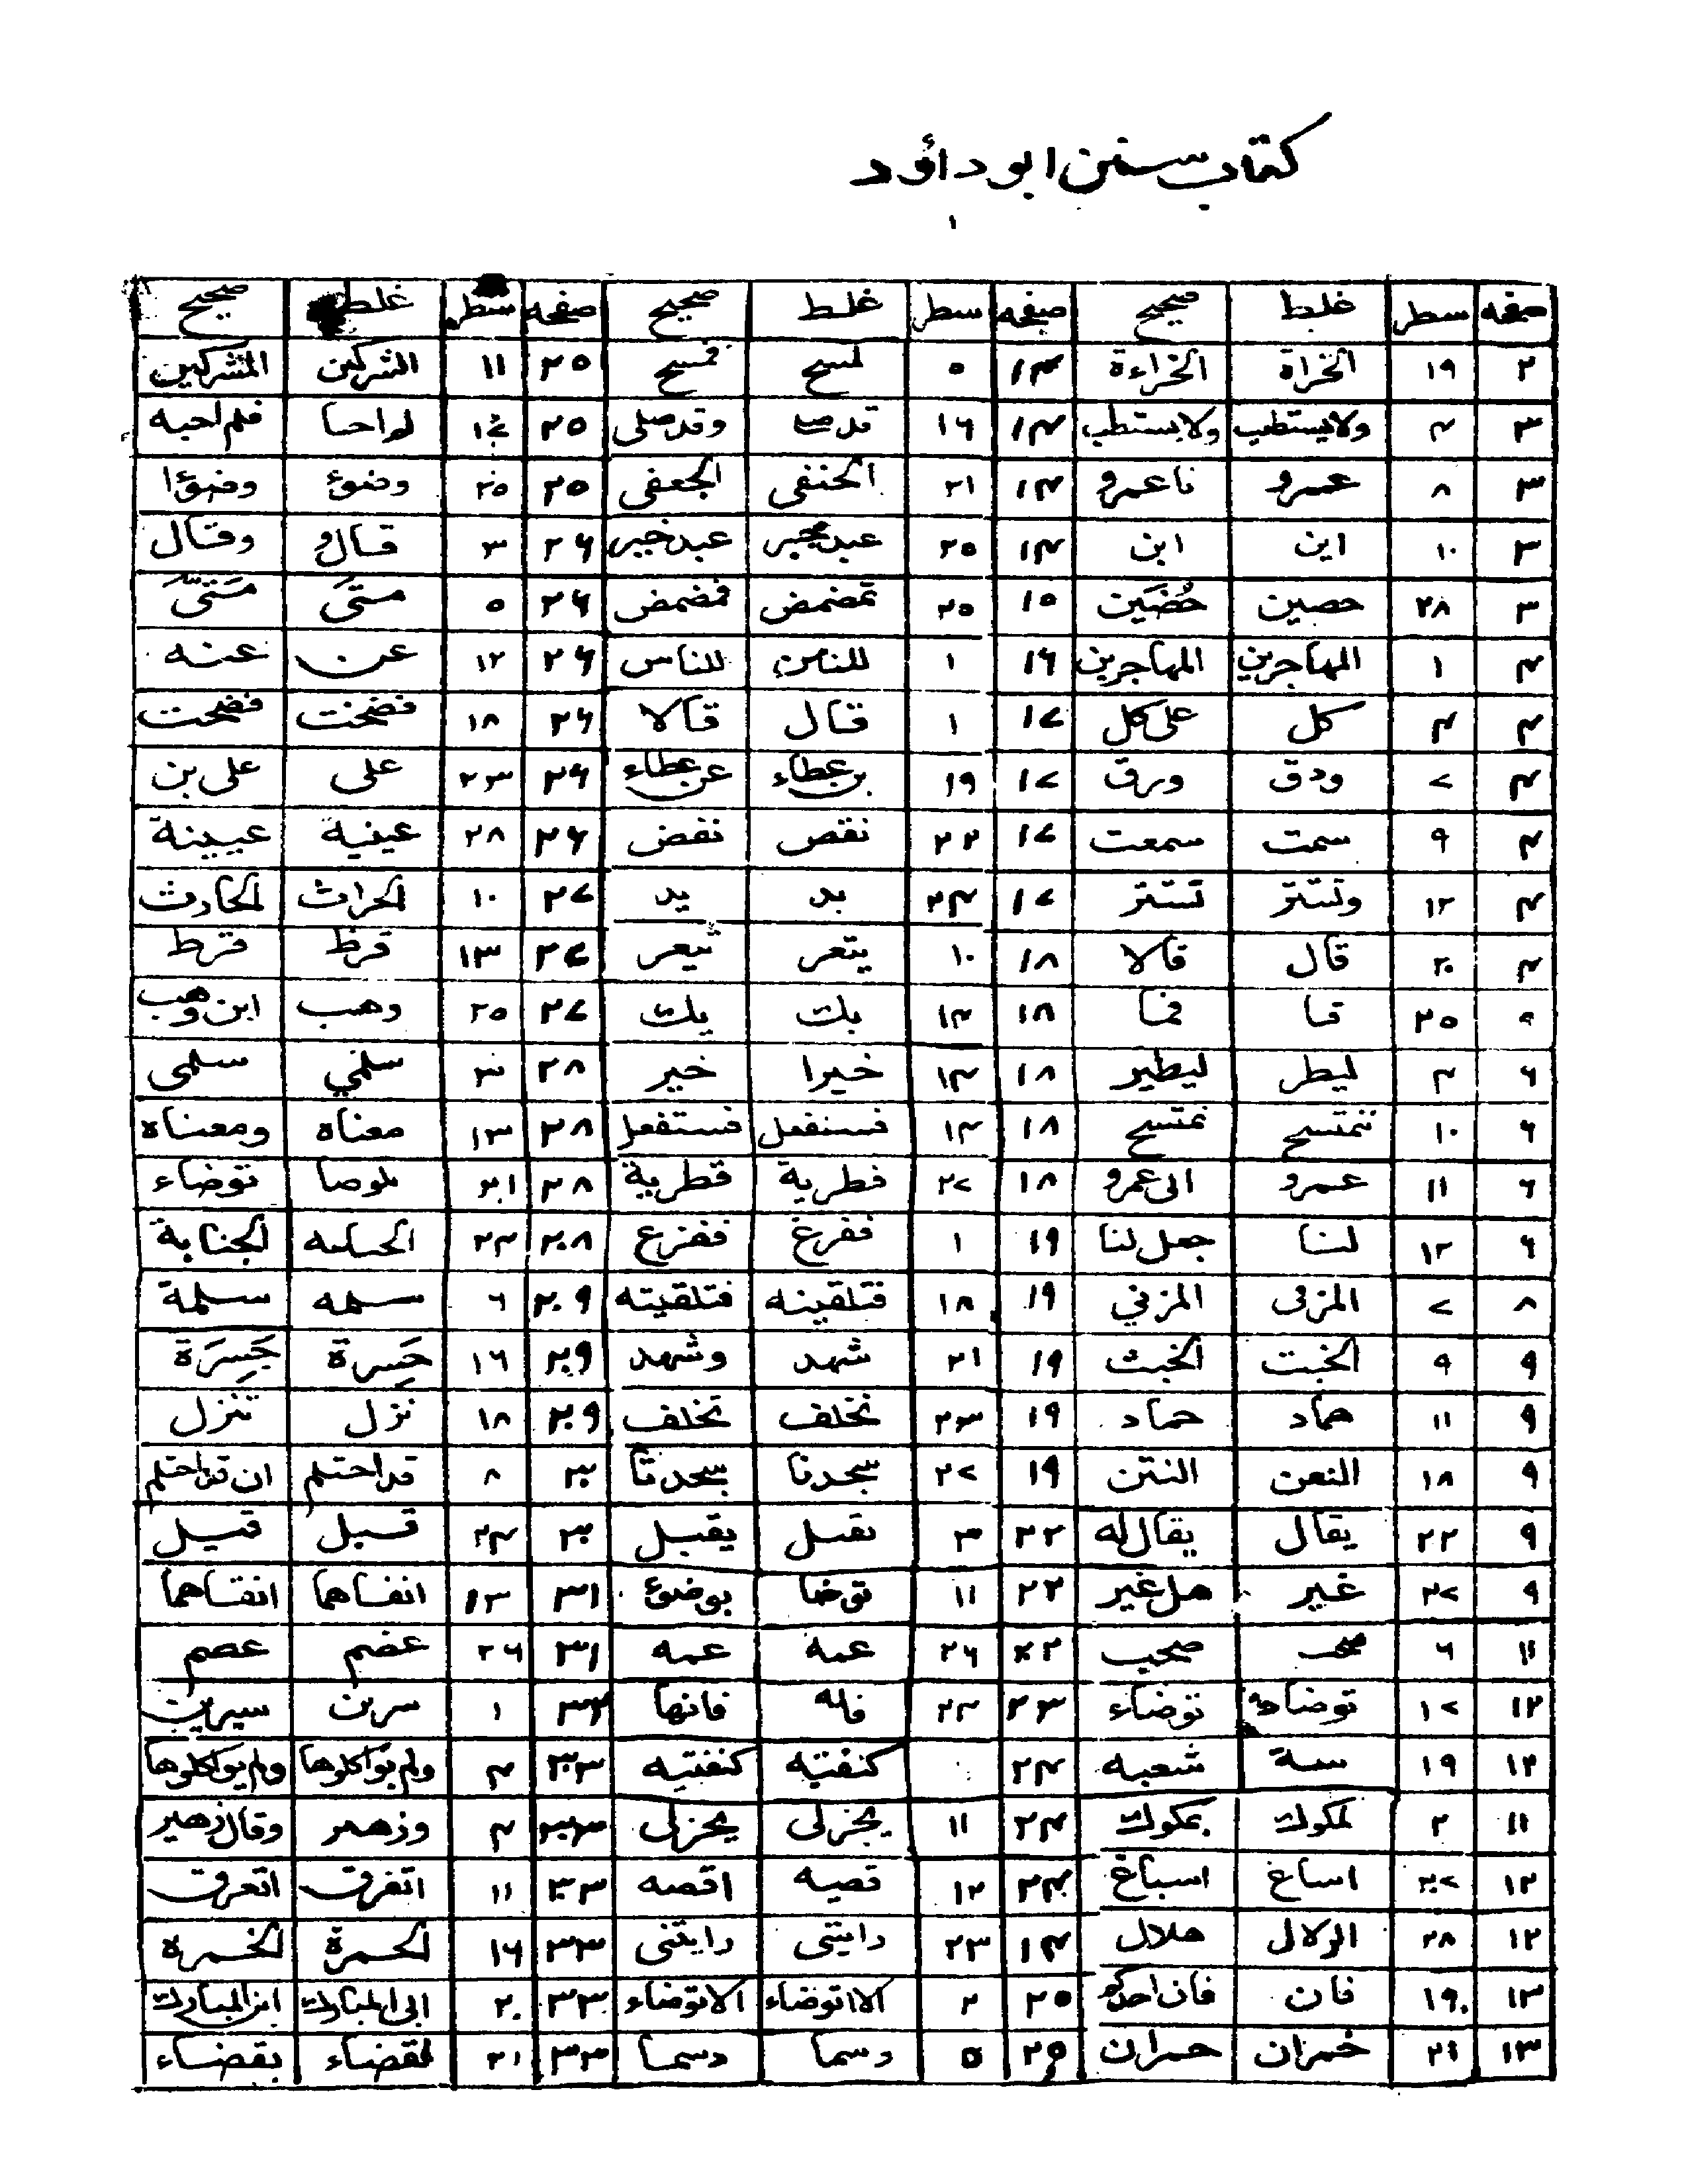 كتاب سنن ابو داؤد
١
صفحه سطر غلط صحيح صفحه سطر غلط صحيح صفحه سطر غلط صحيح
٢ ١٩ الخراة الخراءة ١٤ ٥ لمسح فمسح ٢٥ ١١ الشركين المشركين
٣ ٤ ولايستطب ولا يستطب ١٤ ١٦ وقد صلى ٢٥ فلم احبه
٣ ٨ عمرو نا عمرو ١٤ ٢١ الحنفى الجعفى ٢٥ ٢٥ وضوئ وضوؤا
٣ ١٠ اين ابن ١٤ ٢٥ عبد خير ٢٦ ٣ قال و وقال
٣ ٢٨ حصين حُضَين ١٥ ٢٥ تمضمض فمضمض ٢٦ ٥ مستى مَسَتى
٤ ١ المهاجرين المهاجرين ١٦ ١ للنامن للناس ٢٦ ١٢ عن عنه
٤ ٤ كل على كل ١٧ ١ قال قالا ٢٦ ١٨ فضخت فضحت
٤ ٧ ودق ورق ١٧ ١٩ بن عطاء عن عطاء ٢٦ ٢٣ على على بن
٤ ٩ سمت سمعت ١٧ ٢٢ نقص نفض ٢٦ ٢٨ عينية عيينة
٤ ١٢ وتستتر تستتر ١٧ ٢٤ بد يد ٢٧ ١٠ الحراث الحارث
٤ ٢٠ قال قالا ١٨ ١٠ يتعر شعر ٢٧ ١٣ قرظ قرط
٢٥ فما ١٨ ١٤ بلت يك ٢٧ ٢٥ وهب ابن وهب
٦ ٤ ليطر ليطير ١٨ ١٤ خيرا خير ٢٨ ٣ سلمي سلمى
٦ ١٠ نتمتسح نمتسح ١٨ ١٤ فسنفعل فستفعل ٢٨ ١٣ معناه ومعناه
٦ ١١ عمرو الى عمرو ١٨ ٢٧ فطرية قطرية ٢٨ ٢١ توضاء
٦ ١٢ لنا جعل لنا ١٩ ١ ففرغ ففزع ٢٨ ٢٤ الجنابة
٨ ٧ المزنى المزني ١٩ ١٨ فتلقينه فتلقيته ٢٩ ٦ سلمه سلمة
٩ ٩ الخبت الخبث ١٩ ٢١ شهد وشهد ٢٩ ١٦ حسرة جسرة
٩ ١١ هماد حماد ١٩ ٢٣ تخلف تخلف ٢٩ ١٨ نزل تنزل
٩ ١٨ النعن النتن ١٩ ٢٧ سجدنا سجدتا ٣٠ ٨ قد احتلم ان قد احتلم
٩ ٢٢ يقال يقال له ٢٢ ٣ يقبل ٣٠ ٢٤ قبل قيل
٩ ٢٧ غير هل غير ٢٢ ١١ توضا بوضوئ ٣١ ١٣ انفاهما انقاهما
١١ ٦ صحب ٢٢ ٢٦ عمه ٣١ ٢٦ عضم عصم
١٢ ١٧ توضاء ٢٣ ٢٣ فانها ٣٢ ١ سرين سيرين
١٢ ١٩ شعبه ٢٤ كنفتيه كنفتيه ٣٣ ٤ ولم يواكلوها ولم يواكلوها
١١ ٢ لمكوك بمكوك ٢٤ ١١ يجزلى يحزلى ٣٣ ٤ وزهير وقال زهير
١٢ ٢٧ اساغ اسباغ ٢٤ ١٢ قصيه اقصه ٣٣ ١١ اتفرق اتعرق
١٢ ٢٨ الولال هلال ١٤ ٢٣ رايتى رايتنى ٣٣ ١٦ الحمرة الخمرة
١٣ ١٩ فان فان احدكم ٢٥ ٢ الا اتوضاء الا توضاء ٣٣ ٢٠ ابى المبارك ابن المبارك
١٣ ٢١ خمران حمران ٢٥ ٥ وسما دسما ٣٣ ٢١ لقضاء بقضاء